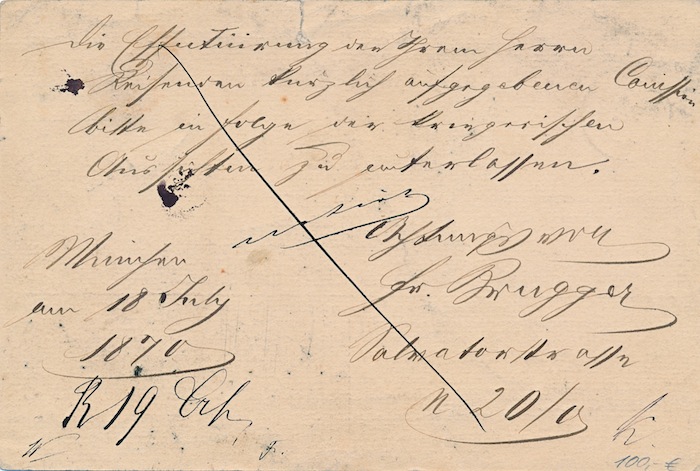 Die Effectuirung der Ihrem Herrn
Reisenden kürzlich aufgegebenen Comission
bitte in folge der kriegerischen
Aussichten zu unterlassen.
notirt
Achtungsvoll
München
Fr. Brugger
am 18 July
1870
Salvatorstrasse
N 20/0
R 19
100,- €